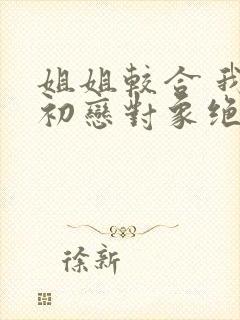 姐姐較合 我
初戀對象絕
徐新